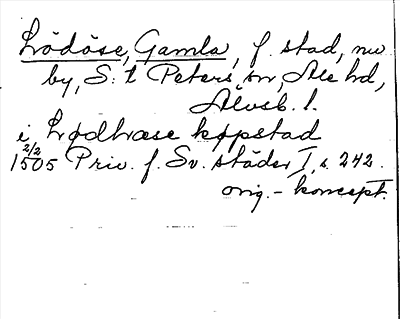 Lödöse, Gamla, f. stad, nu
by, S:t Peters sn, Ale hd,
Älvsb. l.
i Lødhøse køpstad
2/2
1505 Priv. f. Sv. städer I, s. 242.
orig. - koncept.